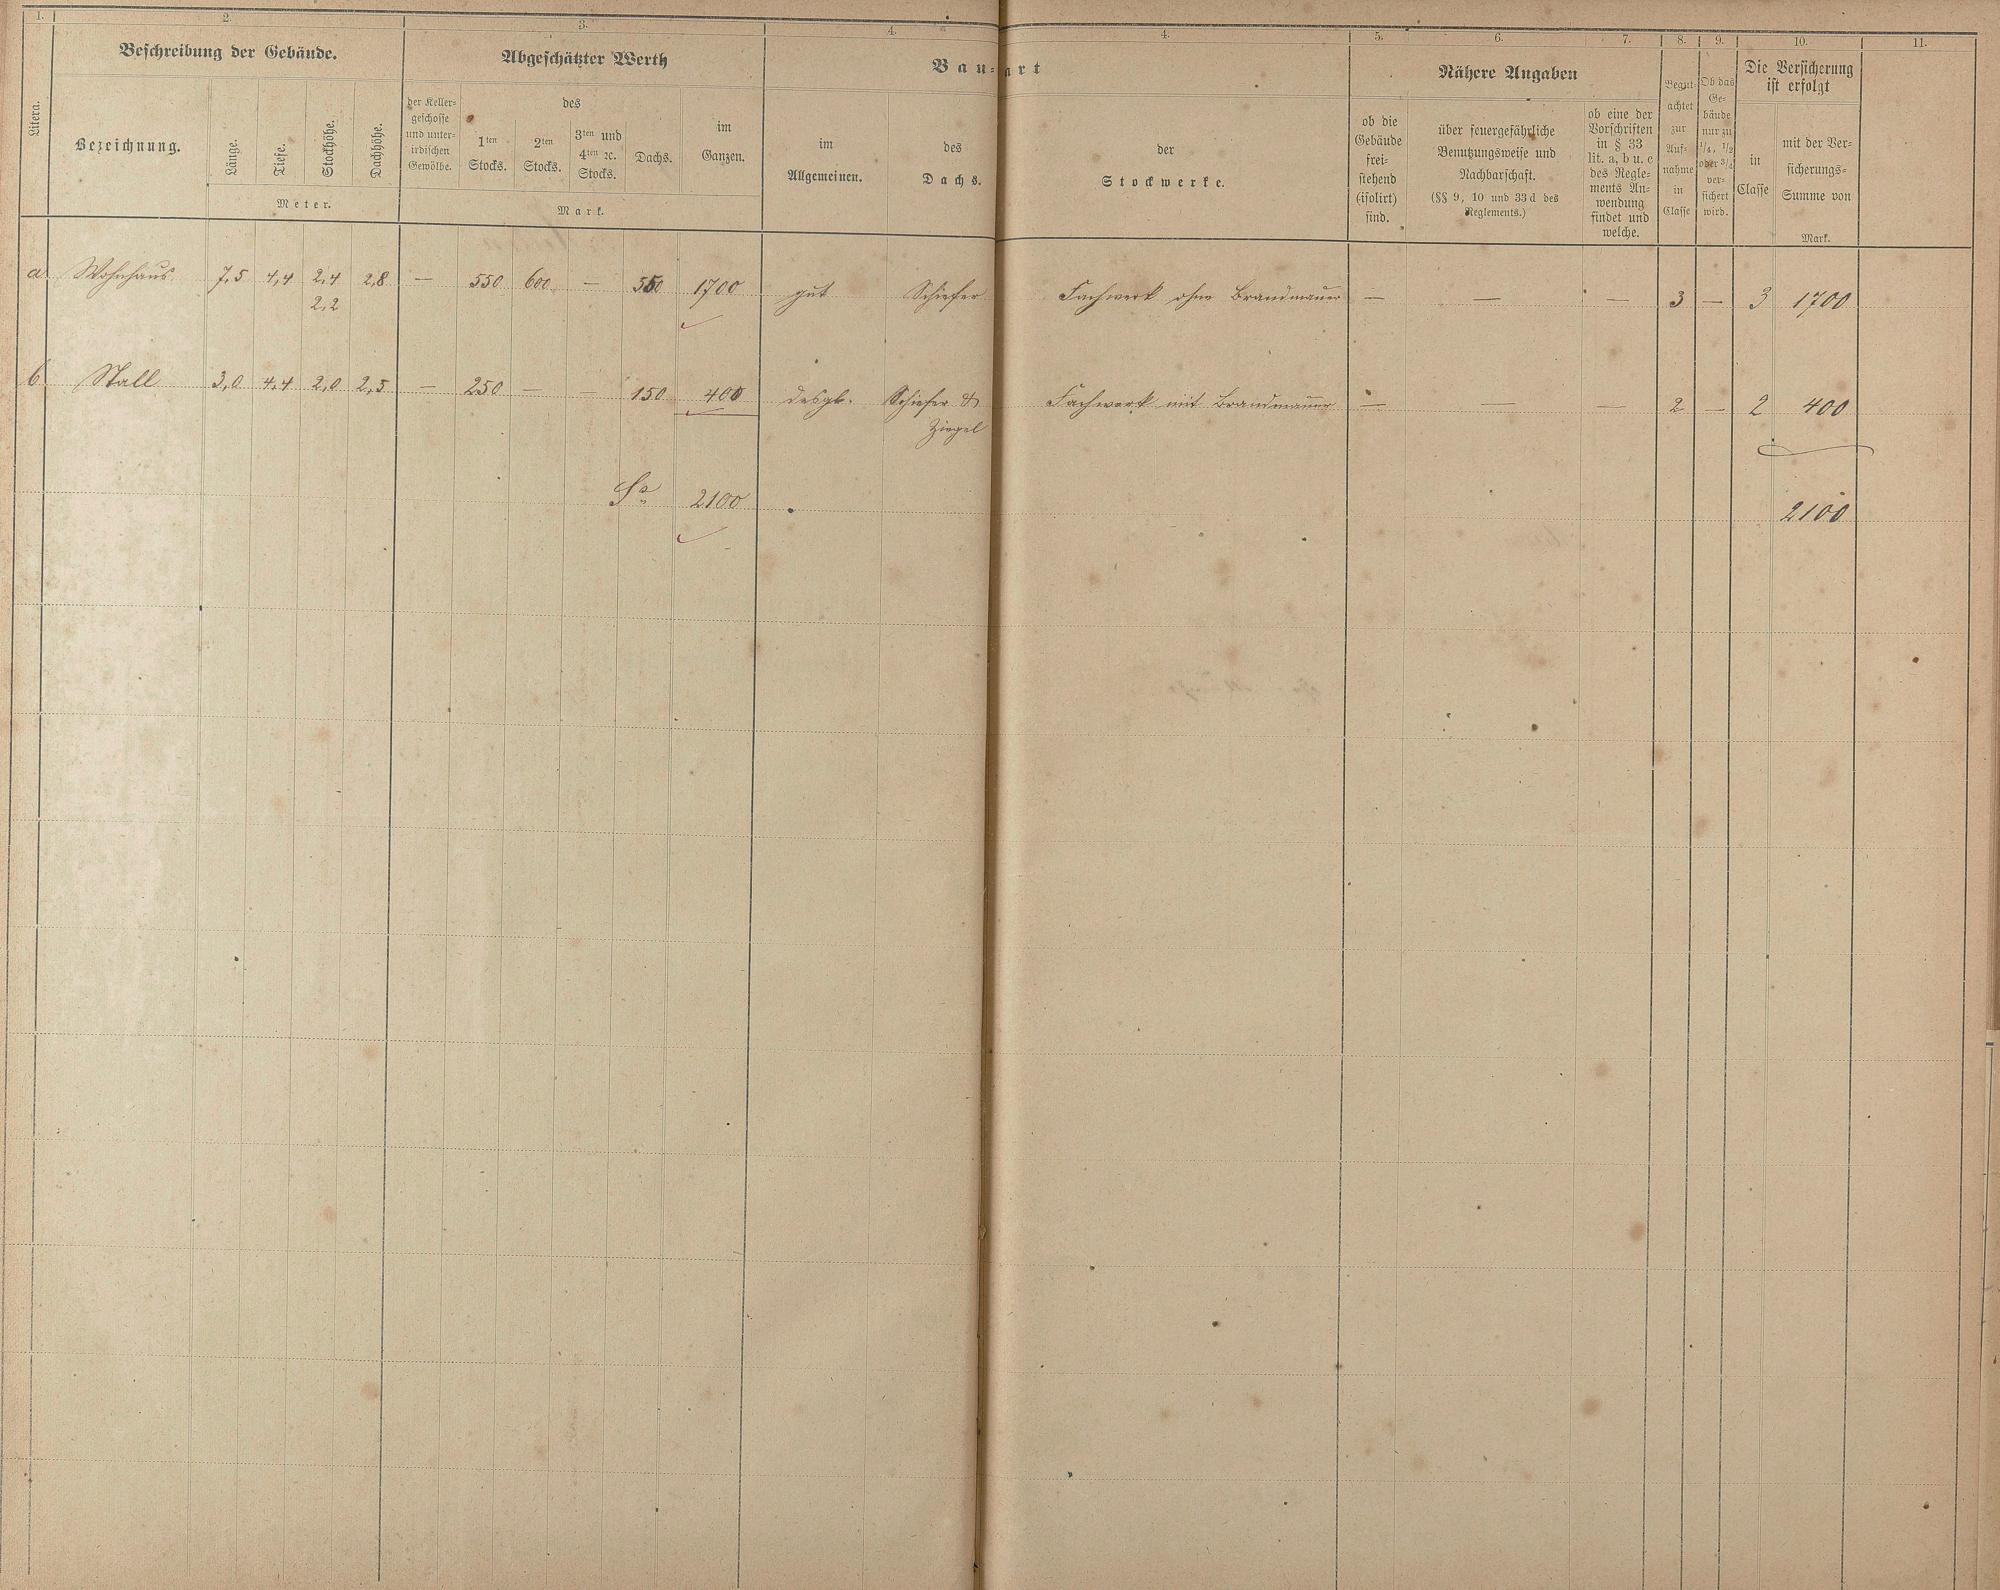 1. 2. 3. 4. 4. 5. 6. 7. 8. 9. 10. 11.
Litera.
Beschreibung der Gebäude.
Bezeichnung.
Länge.
Tiefe.
Stockhöhe.
Dachhöhe.
Meter.
Abgeschätzter Werth
der Keller-
geschosse
und unter-
irdischen
Gewölbe.
des
1ten
Stocks.
2ten
Stocks.
3ten und
4ten ꝛc.
Stocks.
Dachs.
im
Ganzen.
Mark.
Bau-art
im
Allgemeinen.
des
Dachs.
der
Stockwerke.
Nähere Angaben
ob die
Gebäude
frei-
stehend
(isolirt)
sind.
über feuergefährliche
Benutzungsweise und
Nachbarschaft.
(§§ 9, 10 und 33 d des
Reglements.)
ob eine der
Vorschriften
in § 33
lit. a, b u. c
des Regle-
ments An-
wendung
findet und
welche.
Begut-
achtet
zur
Auf-
nahme
in
Classe
Ob das
Ge-
bäude
nur zu
1/4, 1/2
oder 3/4
ver-
sichert
wird.
Die Versicherung
ist erfolgt
in
Classe
mit der Ver-
sicherungs-
Summe von
Mark.
a. Wohnhaus 7,5 4,4 2,4 2,8 — 550 600 — 550 1700 gut Schiefer Fachwerk ohne Brandmauer — — — 3 — 3 1700
2,2
b Stall 3,0 4,4 2,0 2,5 — 250 — — 150 400 desgl. Schiefer & Fachwerk mit Brandmauer — — — 2 — 2 400
Ziegel
Sa 2100 2100